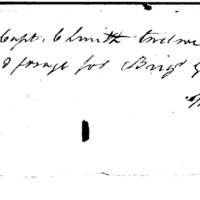 Capt. C Smith twelve
d forage for Brigd